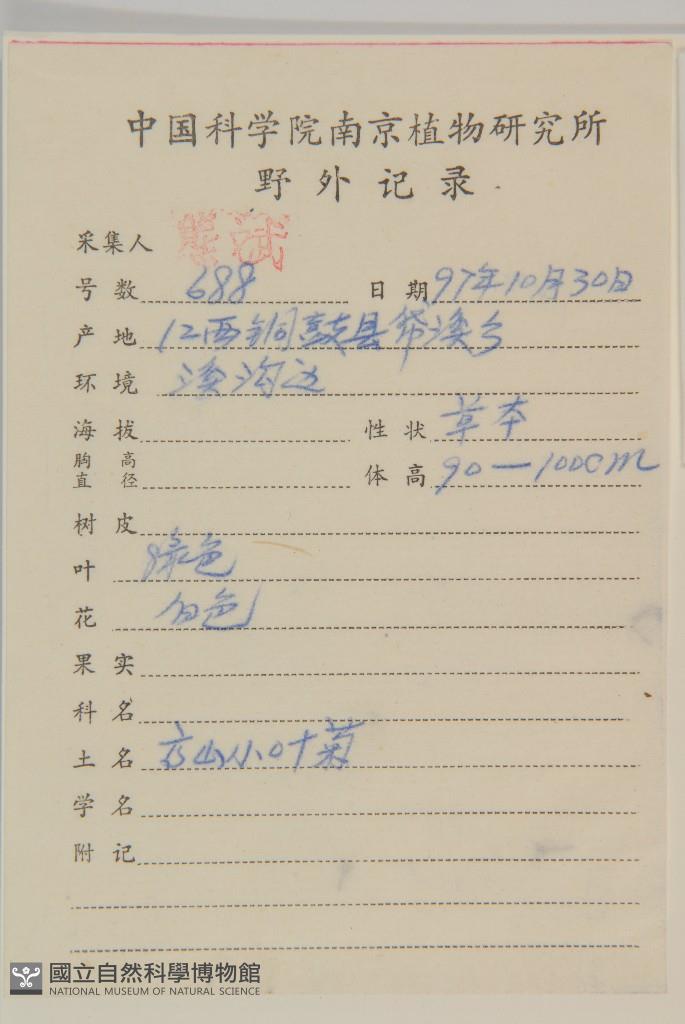 中国科学院南京植物研究所
野外记录
采集人 熊试
号数 688 日期 97年10月30日
产地 江西铜鼓县带溪乡
环境 溪沟边
海拔 性状 草本
胸高直径 体高 90—100cm
树皮
叶 绿色
花 白色
果实
科名
土名 高山小叶菊
学名
附记
國立自然科學博物館
NATIONAL MUSEUM OF NATURAL SCIENCE